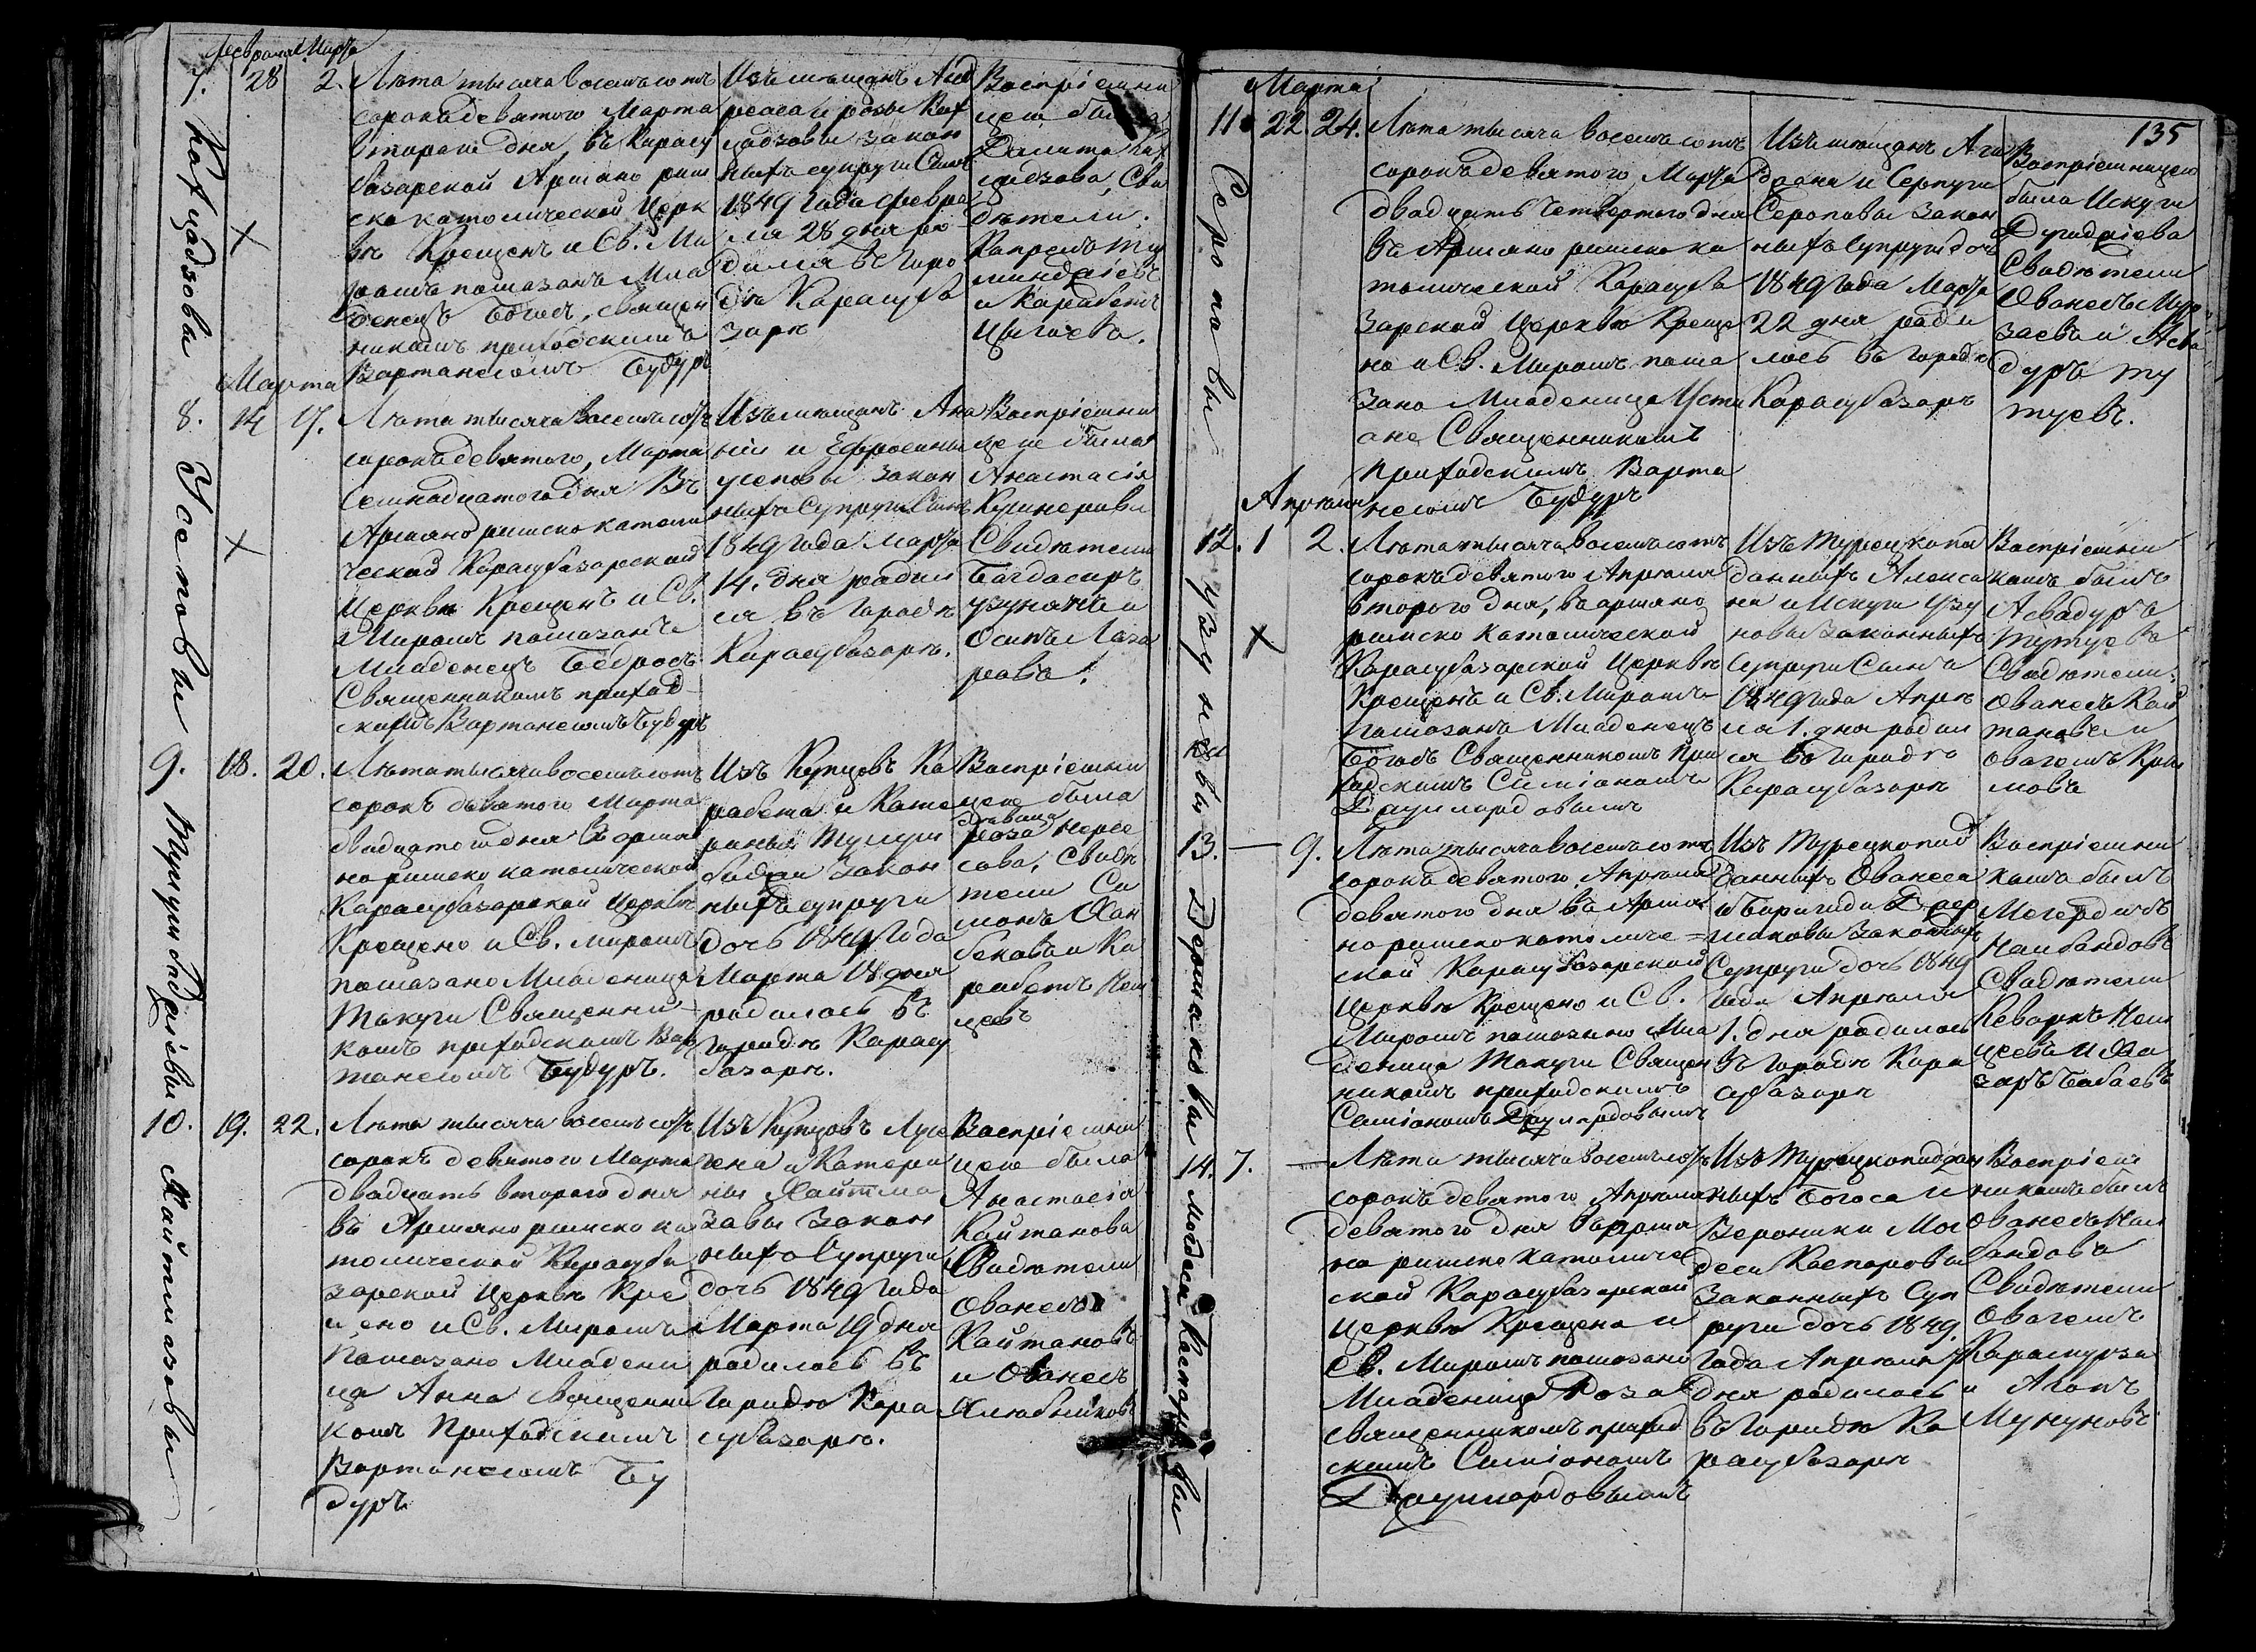 Февраля Марта
7. 28 2.
Кафцадзовы
Лѣта тысяча восемьсотъ
сорокъ девятого Марта
второго дня, въ Карасу
базарской Армяно рим
ско католической Церк
вѣ Крещенъ и Св. Ми
ромъ помазанъ Мла
денецъ Богосъ, священ
никомъ приходскимъ
Вартанесомъ Будуръ
Изъ мѣщанъ Анд
реаса и розы Каф
цадзовы закон
ныхъ супруги Сынъ
1849 года февра
ля 28 дня ро
дился въ горо
дѣ Карасуба
зарѣ
Воспріемни
цею была
Каф
цадзова, Сви
дѣтели.
и Карабетъ
Марта
8. 14 17.
Усеповы
Лѣта тысяча восемьсотъ
сорокъ девятого, Марта
Семнадцатого дня Въ
Армяно римско католи
ческой Карасубазарской
Церквѣ Крещенъ и Св.
Миромъ помазанъ
Младенецъ Бедросъ
Священникомъ приход
скимъ Вартанесомъ Будуръ
Изъ мѣщанъ Ана
ніи и Ефросиньи
усеповы Закон
ныхъ Супруги Сынъ
1849 года марта
14. дня родил
ся въ Городѣ
Карасубазарѣ.
Воспріемни
цею была
Анастасія
Кушнерова
Свидѣтели
Богдасаръ
узуновъ и
Осипъ Лаза
ровъ.
9. 18. 20.
Лѣта тысяча восемьсотъ
сорокъ девятого Марта
двадцатого дня Въ армя
но римско католической
Карасубазарской Церквѣ
Крещено и Св. миромъ
помазано Младеница
Такуги Священни
комъ приходскимъ Вар
танесомъ Будуръ.
Изъ Купцовъ Ка
рабета и Кате
рины
Закон
ныхъ супруги
дочь 1849 года
Марта 18 дня
родилась въ
Городѣ Карасу
базарѣ.
Воспріемни
цею была
роза Нерсе
сова, Свидѣ
тели Си
монъ Хан
бековъ и Ка
рабетъ
10. 19. 22.
Хайтмазовы
Лѣта тысяча восемьсотъ
сорокъ девятого Марта
двадцать второго дня
въ Армяно римско ка
толической Карасуба
зарской Церквѣ Кре
щено и Св. Миромъ
Помазано Младени
ца Анна Священни
комъ Приходскимъ
Вартанесомъ Бу
дуръ
Изъ Купцовъ Луси
гена и Катери
ны Хайтма
зовы Закон
ныхъ Супруги
дочь 1849 года
Марта 19 дня
родилась въ
Городѣ Кара
субазарѣ.
Воспріемни
цею была
Анастасія
Кайтанова
Свидѣтели
Ованесъ
Кайтановъ
и Ованесъ
135
Марта
11. 22 24.
Сероповы
Лѣта тысяча восемьсотъ
сорокъ девятого Марта
двадцать четвертого дня
въ Армяно римско ка
толической Карасуба
зарской Церквѣ Креще
но и Св. Миромъ пома
зано Младеница Усти
ане Священникомъ
Приходскимъ Варта
несомъ Будуръ
Изъ мѣщанъ
и Серпуги
Сероповы Закон
ныхъ Супруги дочь
1849 года Марта
22 дня роди
лась въ Городѣ
Карасубазарѣ
Воспріемницею
была Искуги
Свидѣтели
Ованесъ Мур
заевъ и Асва
дуръ Ту
туевъ.
Апрѣля
12. 1 2.
узуновы
Лѣта тысяча восемьсотъ
сорокъ девятого Апрѣля
второго дня, въ армяно
римско католической
Карасубазарской Церквѣ
Крещенъ и Св. Миромъ
Помазанъ Младенецъ
Богосъ Священникомъ При
ходскимъ Симіономъ
Изъ Турецкопод
данныхъ Алекса
на и Искуги Узу
новы Законныхъ
Супруги Сынъ
1849 года Апрѣ
ля 1. дня родил
ся въ Городѣ
Карасубазарѣ
Воспріемни
комъ былъ
Асвадуръ
Тутуевъ
Свидѣтели:
Ованесъ Кай
тановъ и
Овагемъ Кры
мовъ
13. — 9.
Лѣта тысяча восемьсотъ
сорокъ девятого Апрѣля
девятого дня въ Армя
но римско католиче=
ской Карасубазарской
Церквѣ Крещено и Св.
Миромъ помазано Мла
деница Такуги Священ
никомъ приходскимъ
Симіономъ
Изъ Турецкопод
данныхъ Ованеса
и
Законныхъ
Супруги дочь 1849
года Апрѣля
1. дня родилась
въ Городѣ Кара
субазарѣ
Воспріемни
комъ былъ
Мегердичъ
Налбандовъ
Свидѣтели
Кеворкъ
и
заръ Бабаевъ
14. 7. —
Могдеси Каспаровы
Лѣта тысяча восемьсотъ
сорокъ девятого Апрѣля
девятого дня въ армя
но римско католиче
ской Карасубазарской
Церквѣ Крещена и
Св. Миромъ помазано
Младеница Роза
священникомъ приход
скимъ Симіономъ
Изъ Турецкоподдан
ныхъ Богоса и
Вероники Мог
деси Каспаровы
Законныхъ Суп
руги дочь 1849.
года Апрѣля 7
дня родилась
въ Городѣ Ка
расубазарѣ
Воспріем
никомъ былъ
Ованесъ Нал
бандовъ
Свидѣтели
Овагемъ
Карамурза
и Агопъ
Мунуновъ